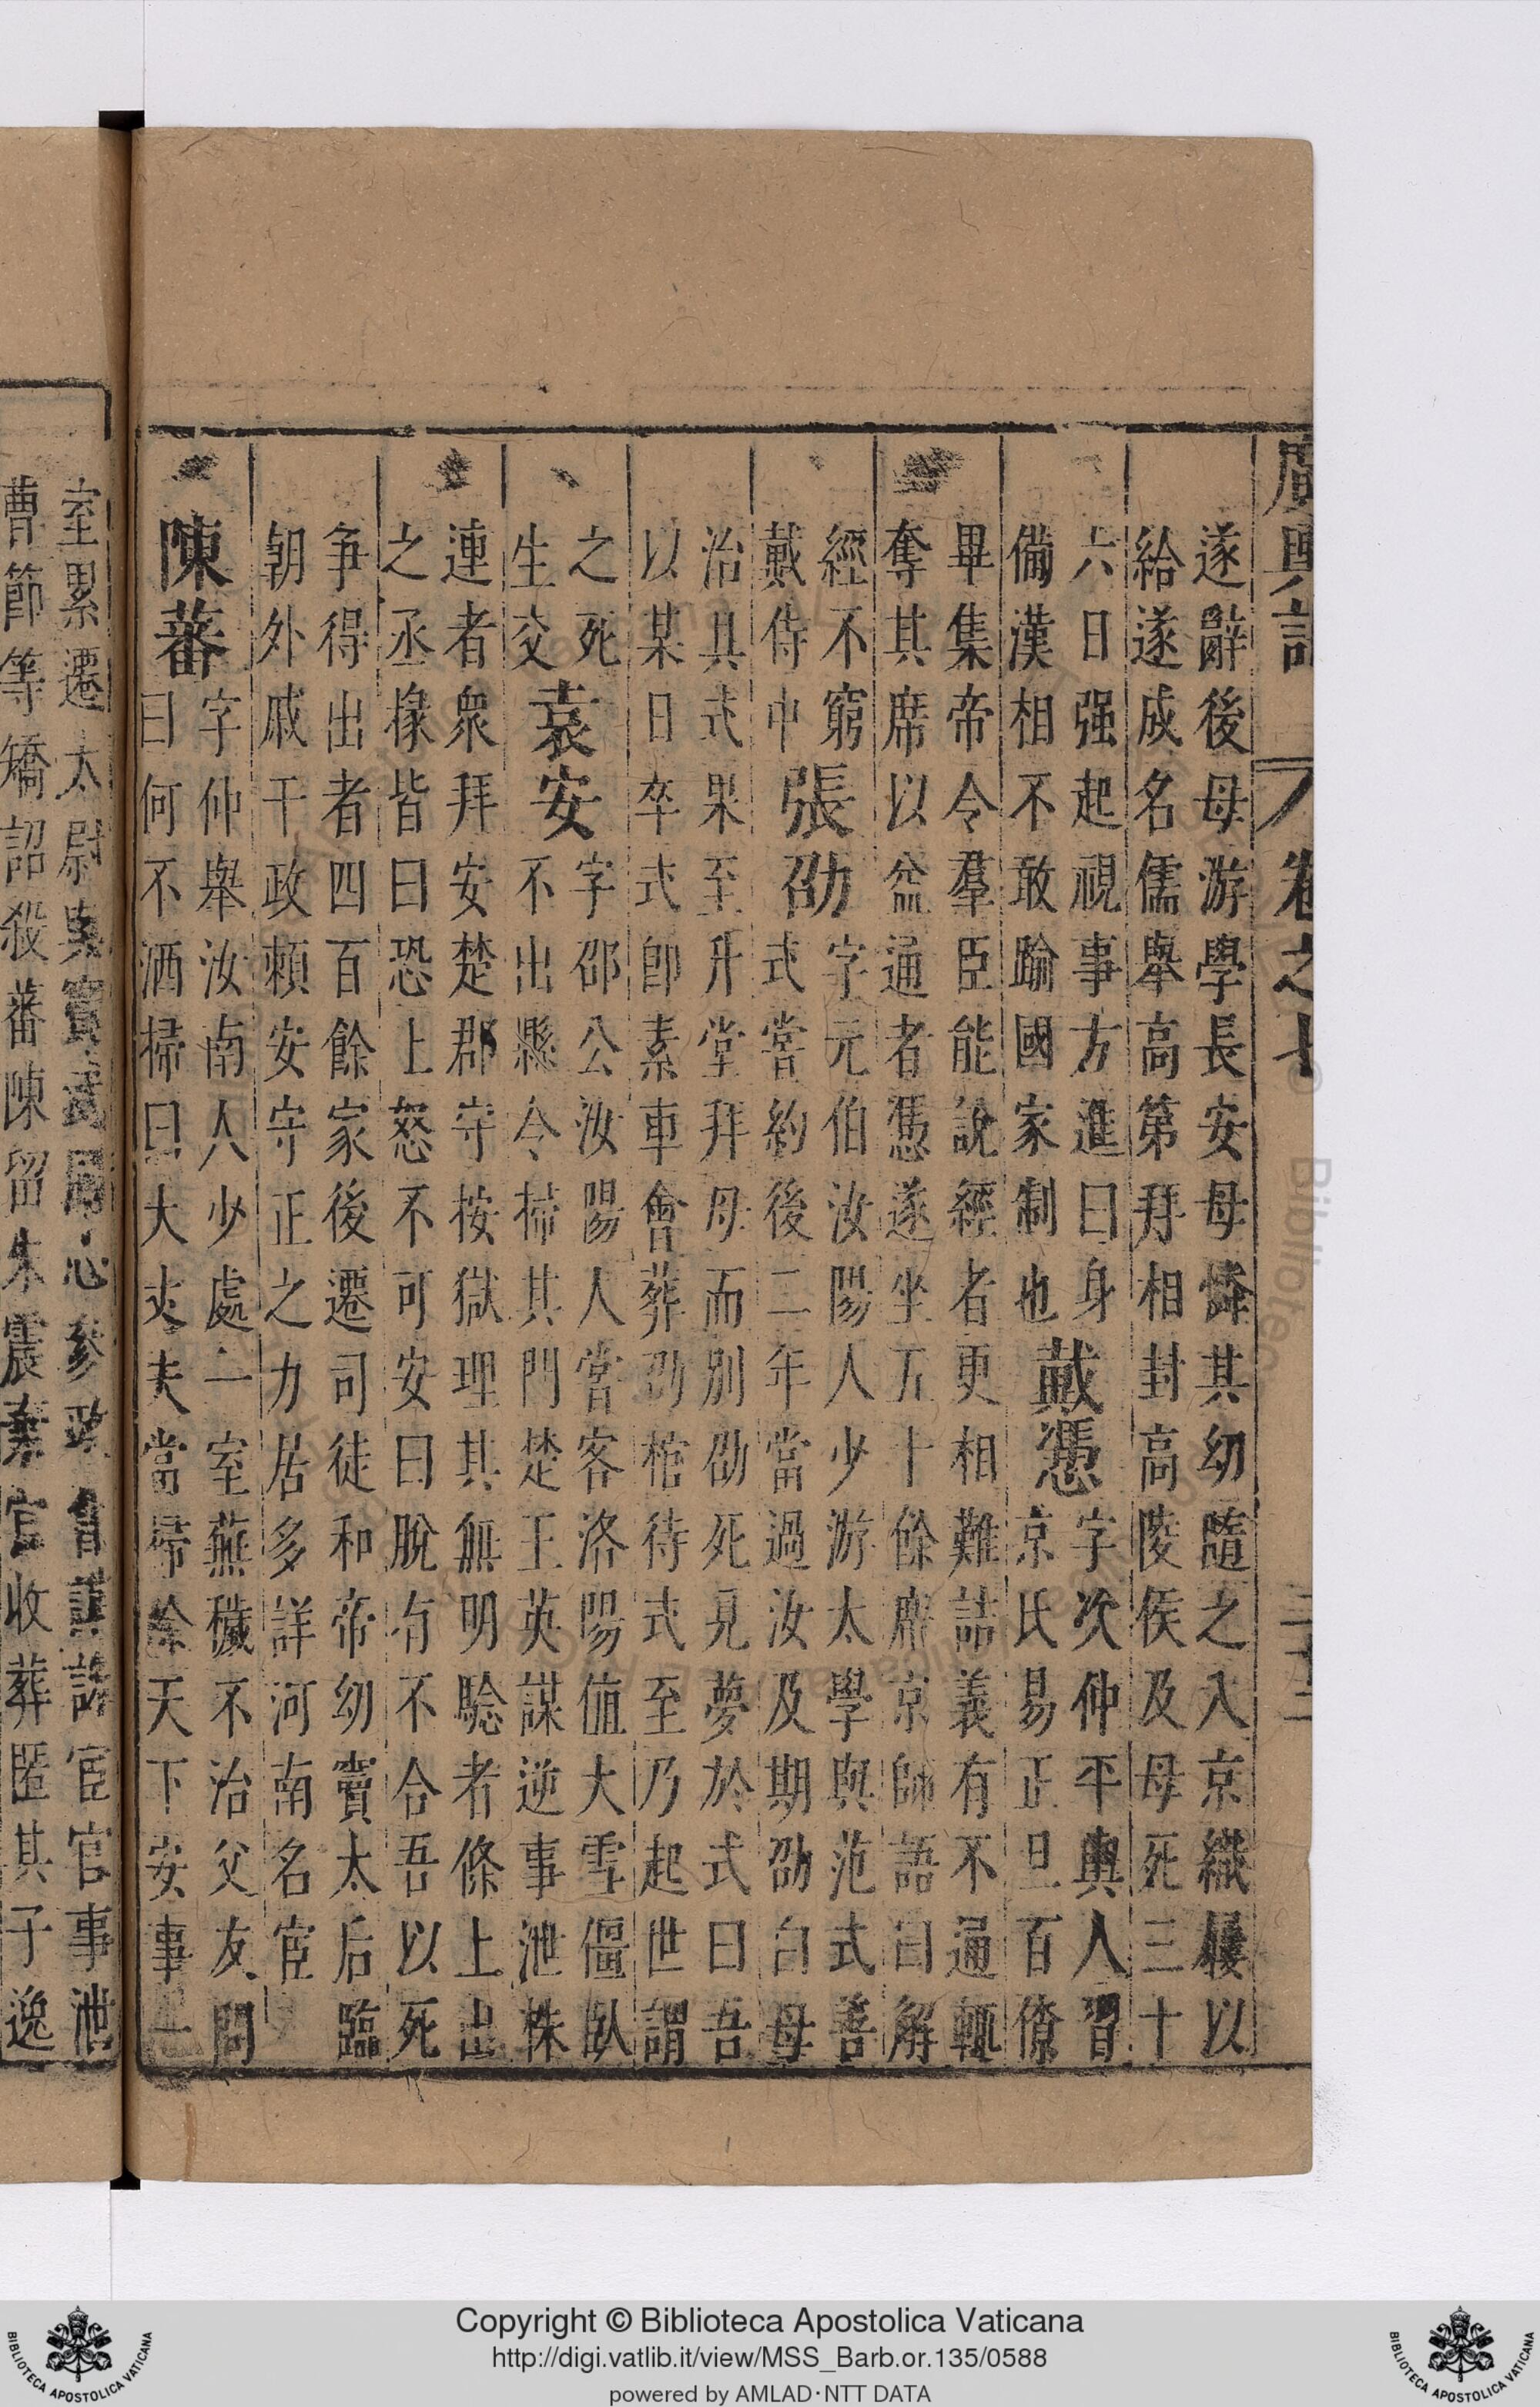 廣輿記 卷之
遂辭後母游學長安母憐其幼隨之入京織屨以
給遂成名儒舉高第拜相封高陵侯及母死三十
六日强起視事方進曰身
備漢相不敢踰國家制也
戴憑
字次仲平輿人習
京氏易正旦百僚
畢集帝令羣臣能說經者更相難詰義有不通輒
奪其席以益通者憑遂坐五十餘席京師語曰解
經不窮
戴侍中
張劭
字元伯汝陽人少游太學與范式善
式嘗約後二年當過汝及期劭白母
治具式果至升堂拜母而别劭死見夢於式曰吾
以某日卒式卽素車會葬劭棺待式至乃起世謂
之死
生交
袁安
字邵公汝陽人嘗客洛陽值大雪僵臥
不出縣令掃其門楚王英謀逆事泄株
連者衆拜安楚郡守按獄理其無明騐者條上出
之丞掾皆曰恐上怒不可安曰脫有不合吾以死
争得出者四百餘家後遷司徒和帝幼竇太后臨
朝外戚干政賴安守正之力居多詳河南名宦
陳蕃
字仲舉汝南人少處一室蕪穢不治父友問
曰何不洒掃曰大丈夫當掃除天下安事一
室累遷太尉與竇武同心參政首謀誅宦官事泄
曹節等矯詔殺蕃陳留朱震棄官收葬匿其子逸
Copyright © Biblioteca Apostolica Vaticana
http://digi.vatlib.it/view/MSS_Barb.or.135/0588
powered by AMLAD·NTT DATA
BIBLIOTECA APOSTOLICA VATICANA
BIBLIOTECA APOSTOLICA VATICANA